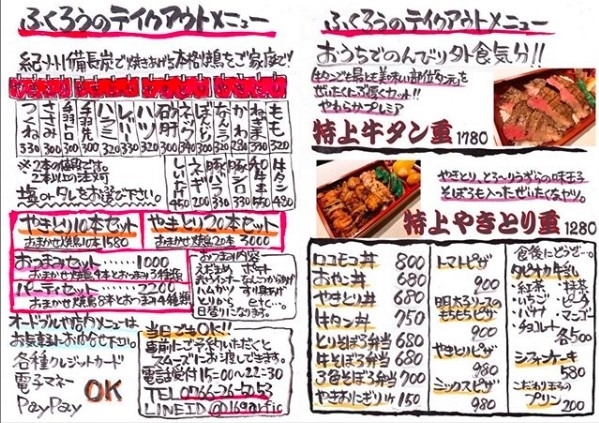 ふくろうのテイクアウトメニュー
紀州備長炭で焼きあげる本格焼鳥をご家庭で!!
もも 320
ねぎま 330
かわ
なんこつ
ぼんじり
ネック
砂肝
ハツ 320
レバー 320
ハラミ 320
手羽先
手羽トロ
ささみ
つくね 330
牛タン 480
しいたけ 450
※2本の値段です。
2本以上の注文
塩orタレをお選び下さい。
やきとり10本セット
おまかせ焼鳥10本 1580
やきとり20本セット
おまかせ焼鳥20本 3000
おつまみセット……1000
おまかせ焼鳥4本とおつまみ3種類
パーティセット……2200
おまかせ焼鳥8本とおつまみ4種類
おつまみ内容
えだまめ ポテト
赤ウインナー なんこつからあげ
ハムカツ
とりから etc…。
日替りになります。
オードブルや店内メニューは
お気軽にお問合せ下さい。
各種クレジットカード
電子マネー
PayPay
OK
当日でもOK!!
事前にご予約いただくと
スムーズにお渡しできます。
電話受付15:00~22:30
TEL 0766-26-5053
LINE ID @169arfic
ふくろうのテイクアウトメニュー
おうちでのんびり外食気分!!
牛タンで最も美味い部位タン元を
ぜいたくにぶ厚くカット!!
やわらかプレミア
特上牛タン重 1780
やきとり、とろ~りうずらの味玉子
そぼろも入ったぜいたくなやつ。
特上やきとり重 1280
ロコモコ丼 800
おやこ丼 680
やきとり丼 680
牛タン丼 750
とりそぼろ弁当 680
牛そぼろ弁当 680
3色そぼろ弁当 700
やきおにぎり 1ケ 150
トマトピザ
900
明太子ソースの
もちもちピザ
900
やきとりピザ
980
ミックスピザ
980
食後にどうぞ…。
タピオカ牛乳
・紅茶 ・抹茶
・いちご ・ピーチ
・バナナ ・マンゴー
・チョコレート 各500
シフォンケーキ
580
こだわり玉子の
プリン 200